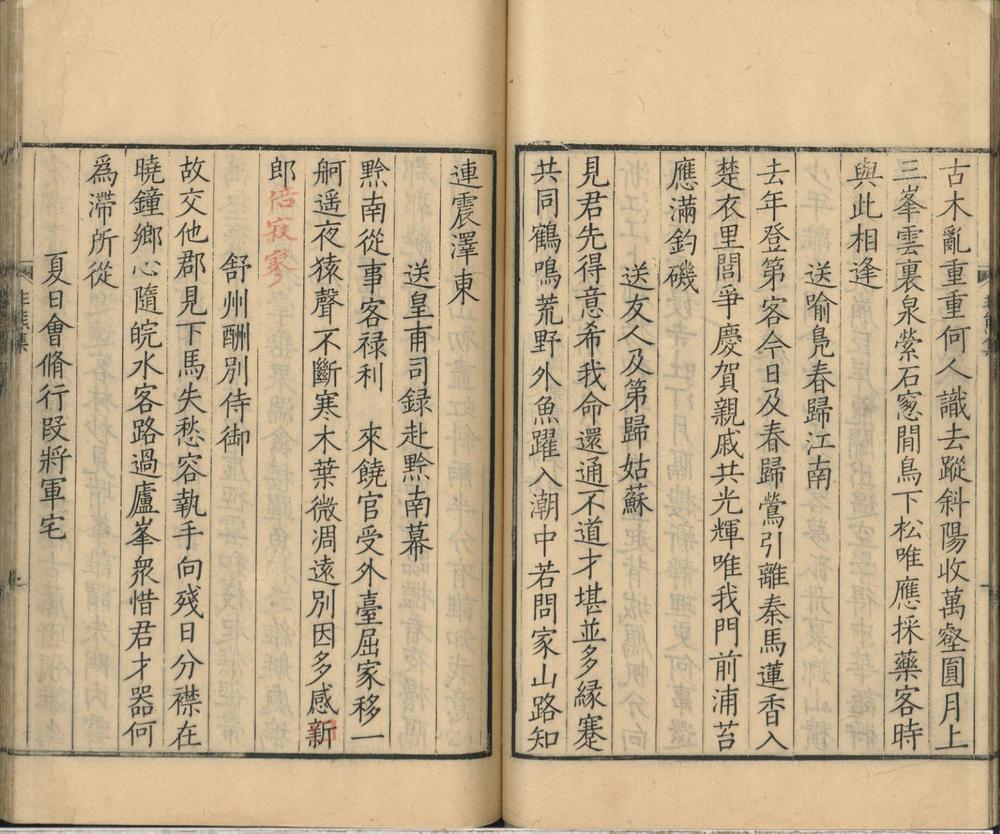 古木亂重重何人識去蹤斜陽收萬壑圓月上
三峯雲裏泉縈石窓閒鳥下松唯應採藥客時
與此相逢
送喻鳧春歸江南
去年登第客今日及春歸鶯引離秦馬蓮香入
楚衣里閭爭慶賀親戚共光輝唯我門前浦苔
應滿釣磯
送友人及第歸姑蘇
見君先得意希我命還通不道才堪並多緣蹇
共同鶴鳴荒野外魚躍入潮中若問家山路知
連震澤東
送皇甫司録赴黔南幕
黔南從事客禄利 來饒官受外臺屈家移一
舸遥夜猿聲不斷寒木葉微凋遠別因多感新
郎倍寂寥
舒州酬別侍御
故交他郡見下馬失愁容執手向殘日分襟在
曉鐘鄉心隨皖水客路過廬峯衆惜君才器何
爲滯所從
夏日會脩行段將軍宅